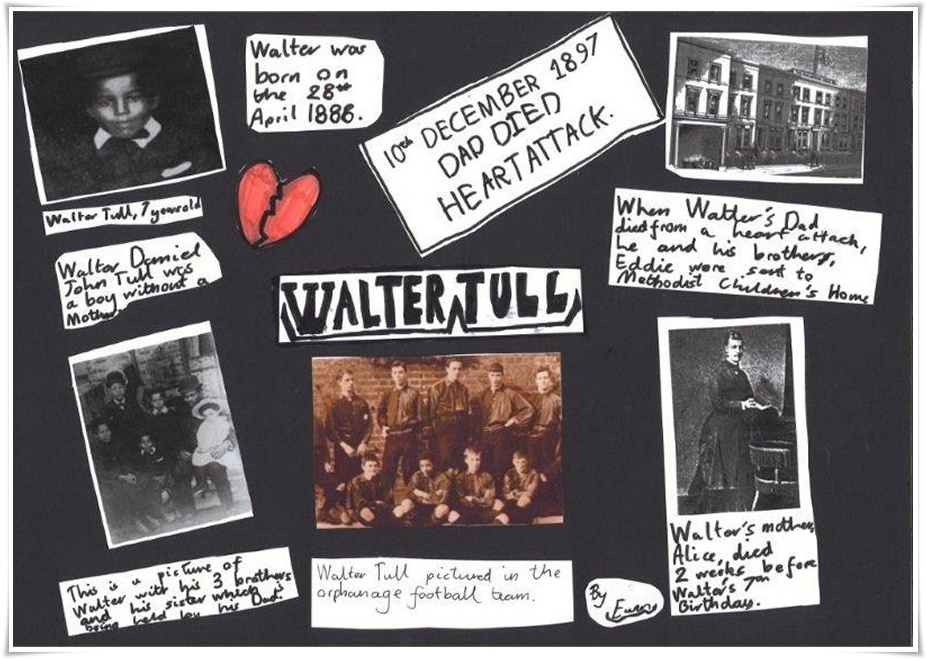 Walter was
born on
the 28th
April 1888.
10th DECEMBER 1897
DAD DIED
HEART ATTACK.
Walter Tull, 7 years old
Walter Daniel
John Tull was
a boy without a
Mother.
When Walter's Dad
died from a heart attack,
he and his brothers,
Eddie were sent to
Methodist Children's Home
WALTER TULL
This is a picture of
Walter with his 3 brothers
and his sister which is
being held by his Dad.
Walter Tull pictured in the
orphanage football team.
By
Walter's mother,
Alice, died
2 weeks before
Walter's 7th
Birthday.